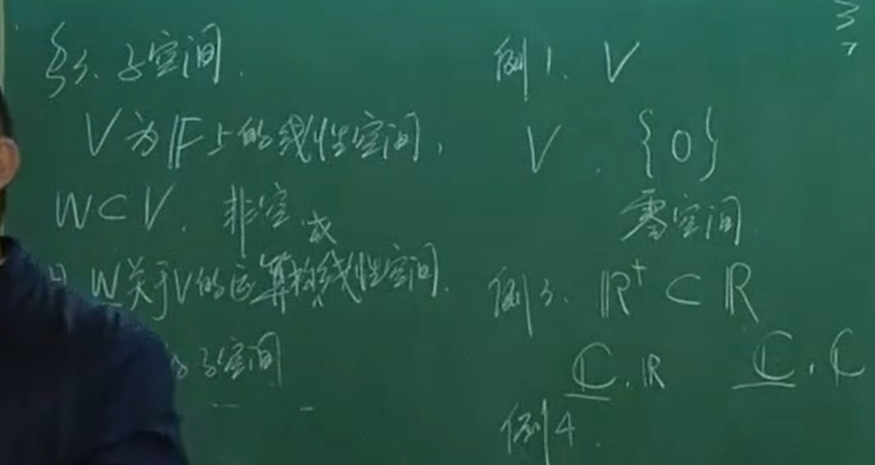 §3. 子空间.
V为𝔽上的线性空间,
W⊂V. 非空.
W关于V的运算构成线性空间.
子空间
例1. V
V. {0}
零空间
例3. ℝ⁺ ⊂ ℝ
ℂ. ℝ ℂ. ℂ
例4.